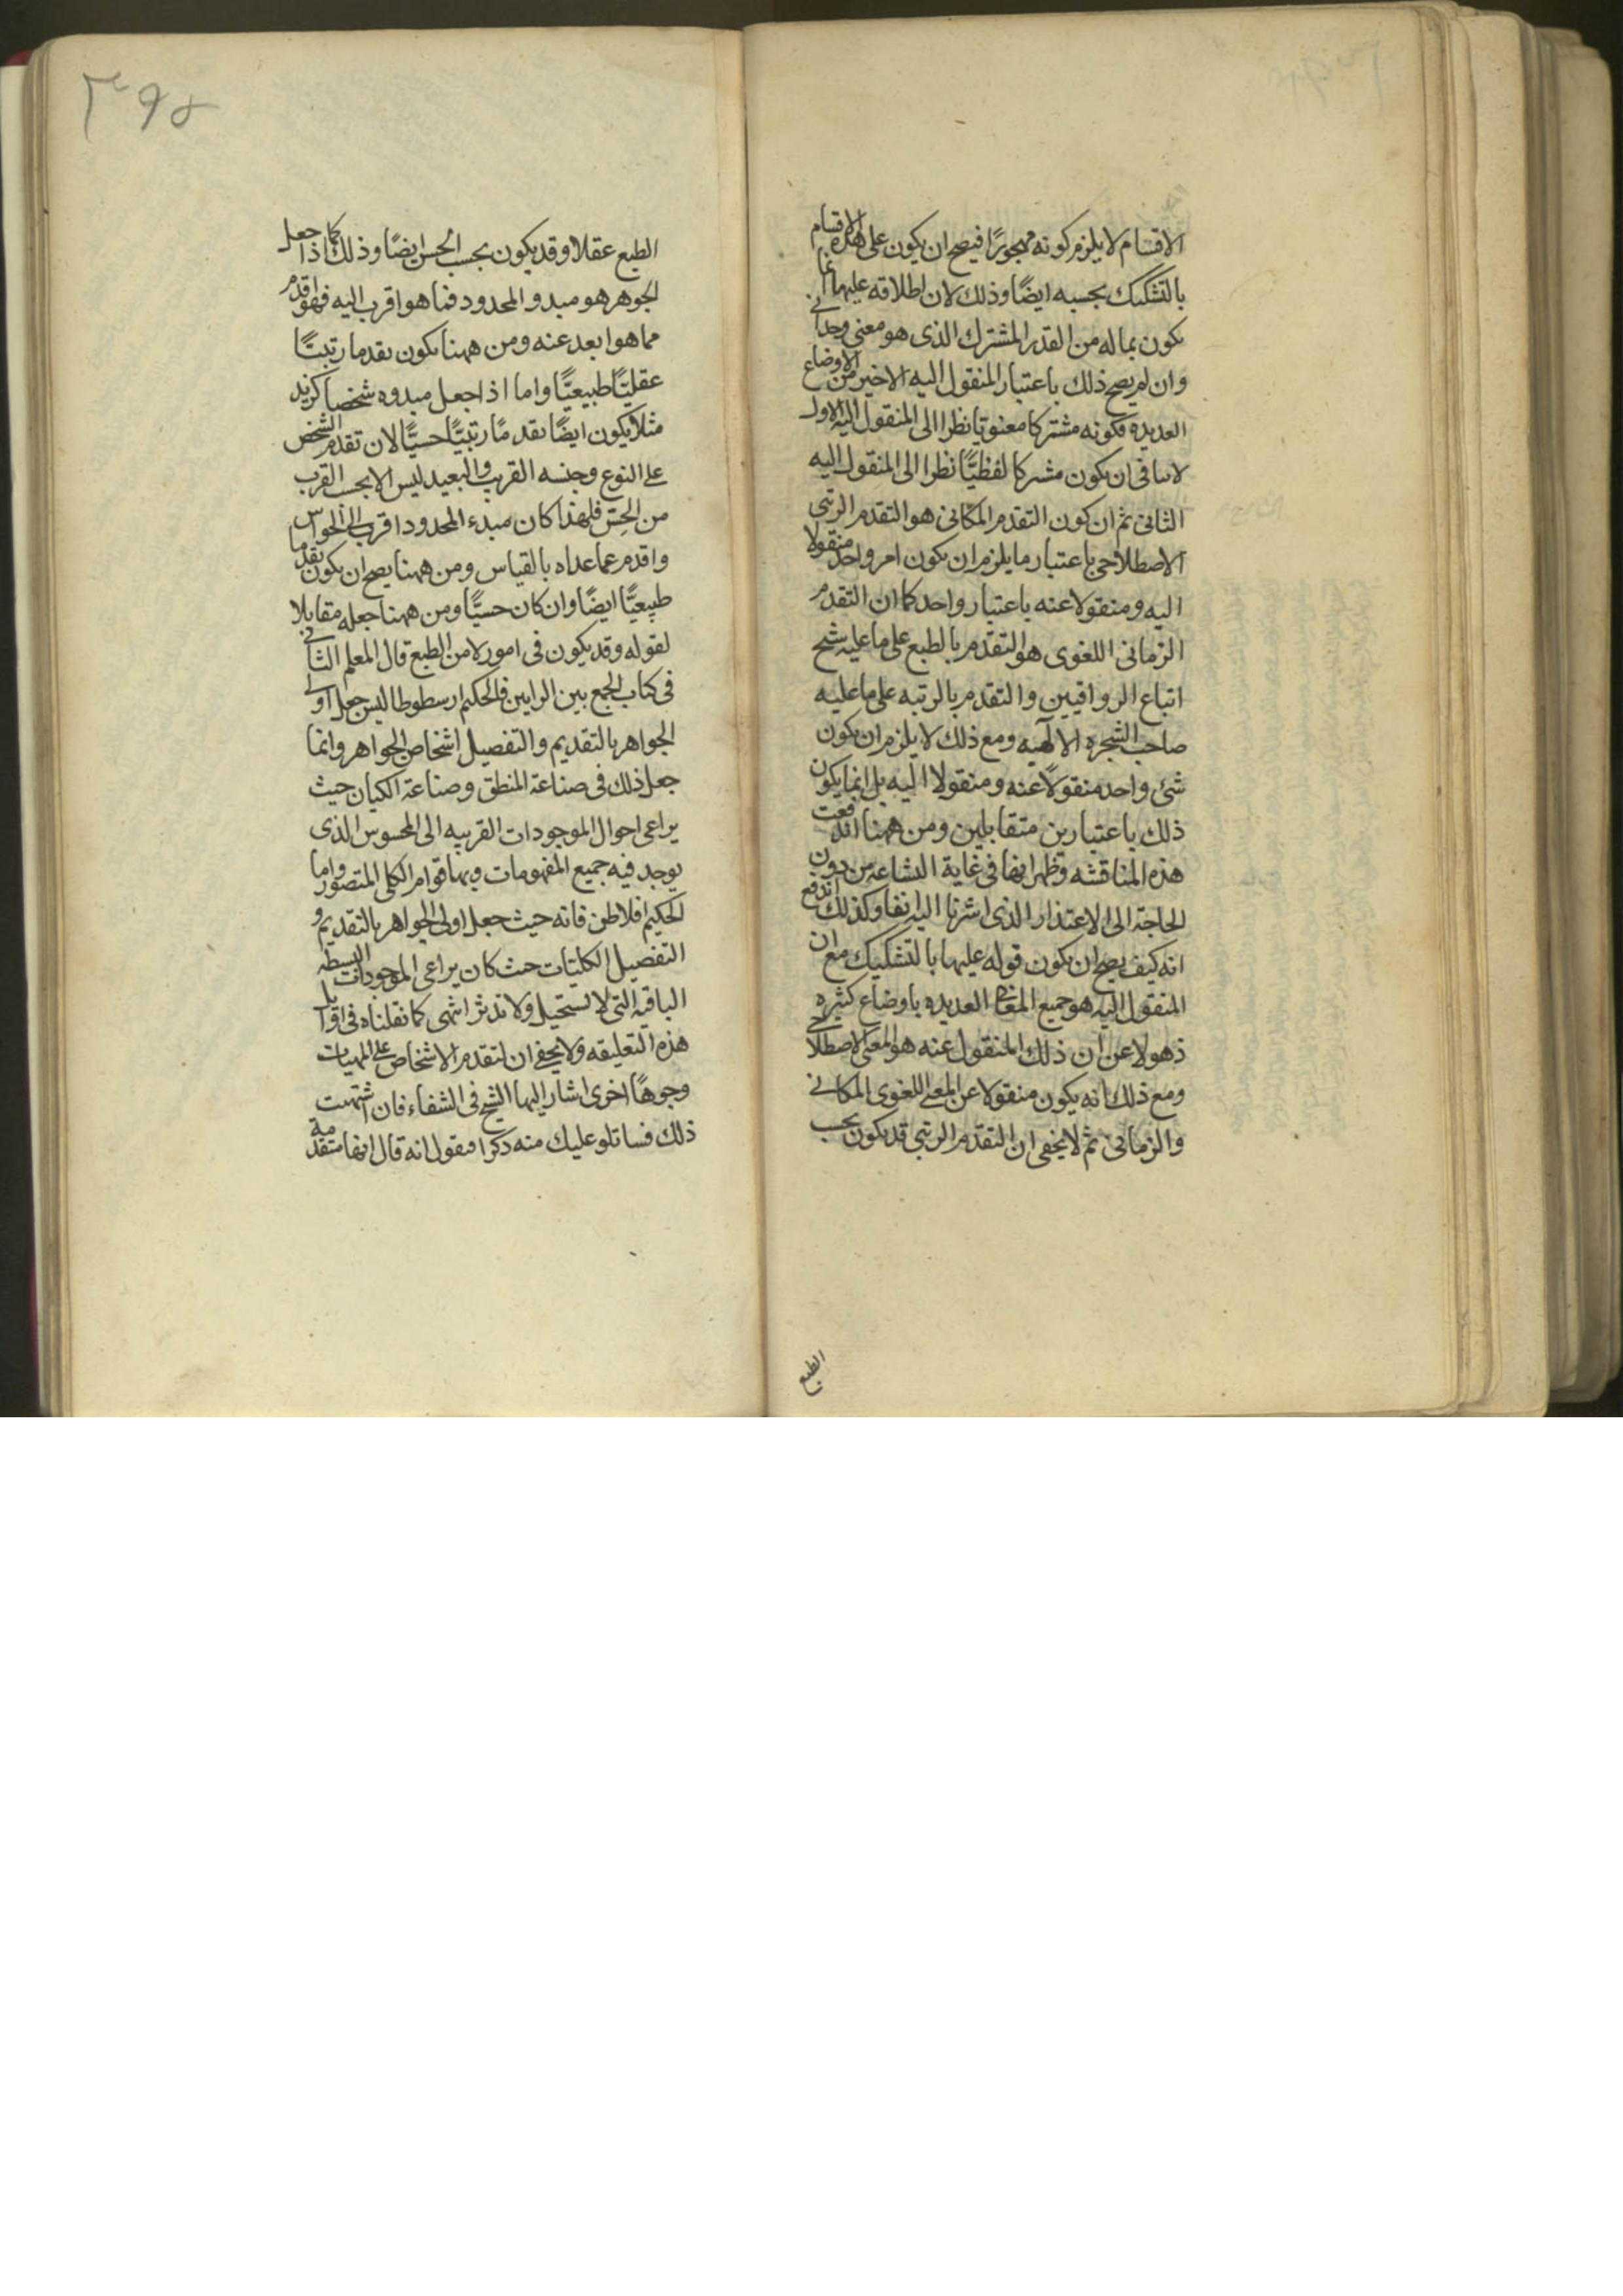 الاقسام لا يلزم كونه مهجورًا فيصح ان يكون على هذه الاقسام
بالتشكيك بحسبه ايضًا وذلك لان اطلاقه عليها انما
يكون بماله من القدر المشترك الذى هو معنى وحدانى
وان لم يصح ذلك باعتبار المنقول اليه الاخير من الاوضاع
العديده فكونه مشتركا معنويا نظرا الى المنقول اليه الاول
لاينافى ان يكون مشتركا لفظيًّا نظرا الى المنقول اليه
الثانى ثم ان كون التقدم المكانى هو التقدم الرتبى
الاصطلاحى باعتبار ما يلزم ان يكون امر واحد منقولا
اليه ومنقولا عنه باعتبار واحد كما ان التقدم
الزمانى اللغوى هو التقدم بالطبع على ما عليه شيخ
اتباع الرواقيين والتقدم بالرتبه على ما عليه
صاحب الشجره الالهيه ومع ذلك لا يلزم ان يكون
شئ واحد منقولاً عنه ومنقولا اليه بل انما يكون
ذلك باعتبارين متقابلين ومن ههنا اندفعت
هذه المناقشه وظهر انها فى غاية الشناعه من دون
الحاجة الى الاعتذار الذى اشرنا اليه انفا وكذلك اندفع
انه كيف يصح ان يكون قوله عليها بالتشكيك مع ان
المنقول اليه هو جميع المعانى العديده باوضاع كثيره
ذهولا عن ان ذلك المنقول عنه هو المعنى الاصطلاحى
ومع ذلك انه يكون منقولا عن المعنى اللغوى المكانى
والزمانى ثم لا يخفى ان التقدم الرتبى قد يكون بحسب
الطبع
٣٩٨
الطبع عقلا وقد يكون بحسب الحس ايضًا وذلك كما اذا جعل
الجوهر هو مبدو المحدود فما هو اقرب اليه فهو اقدم
مما هو ابعد عنه ومن ههنا يكون تقدما رتبيًّا
عقليًّا طبيعيًّا واما اذا جعل مبدوه شخصا كزيد
مثلا يكون ايضًا تقدمًا رتبيًّا حسيًّا لان تقدم الشخص
على النوع وجنسه القريب والبعيد ليس الا بحسب القرب
من الحسّ فلهذا كان مبدء المحدود اقرب الى الحواس
واقدم عما عداه بالقياس ومن ههنا يصح ان يكون تقدما
طبيعيًّا ايضًا وان كان حسيًّا ومن ههنا جعله مقابلا
لقوله وقد يكون فى امور لا من الطبع قال المعلم الثانى
فى كتاب الجمع بين الرايين فالحكيم ارسطوطاليس جعل اولى
الجواهر بالتقديم والتفصيل اشخاص الجواهر وانما
جعل ذلك فى صناعة المنطق وصناعة الكيان حيث
يراعى احوال الموجودات القريبه الى المحسوس الذى
يوجد فيه جميع المفهومات وبها قوام الكلى المتصور واما
الحكيم افلاطن فانه حيث جعل اولى الجواهر بالتقديم و
التفصيل الكليّات حيث كان يراعى الموجودات البسيطه
الباقيه التى لا تستحيل ولا تدثر انتهى كما نقلناه فى اوايل
هذه التعليقه ولا يخفى ان لتقدم الاشخاص على المهيات
وجوهًا اخرى اشار اليها الشيخ فى الشفاء فان اشتهيت
ذلك فساتلو عليك منه ذكرا فنقول انه قال انها متقدمة